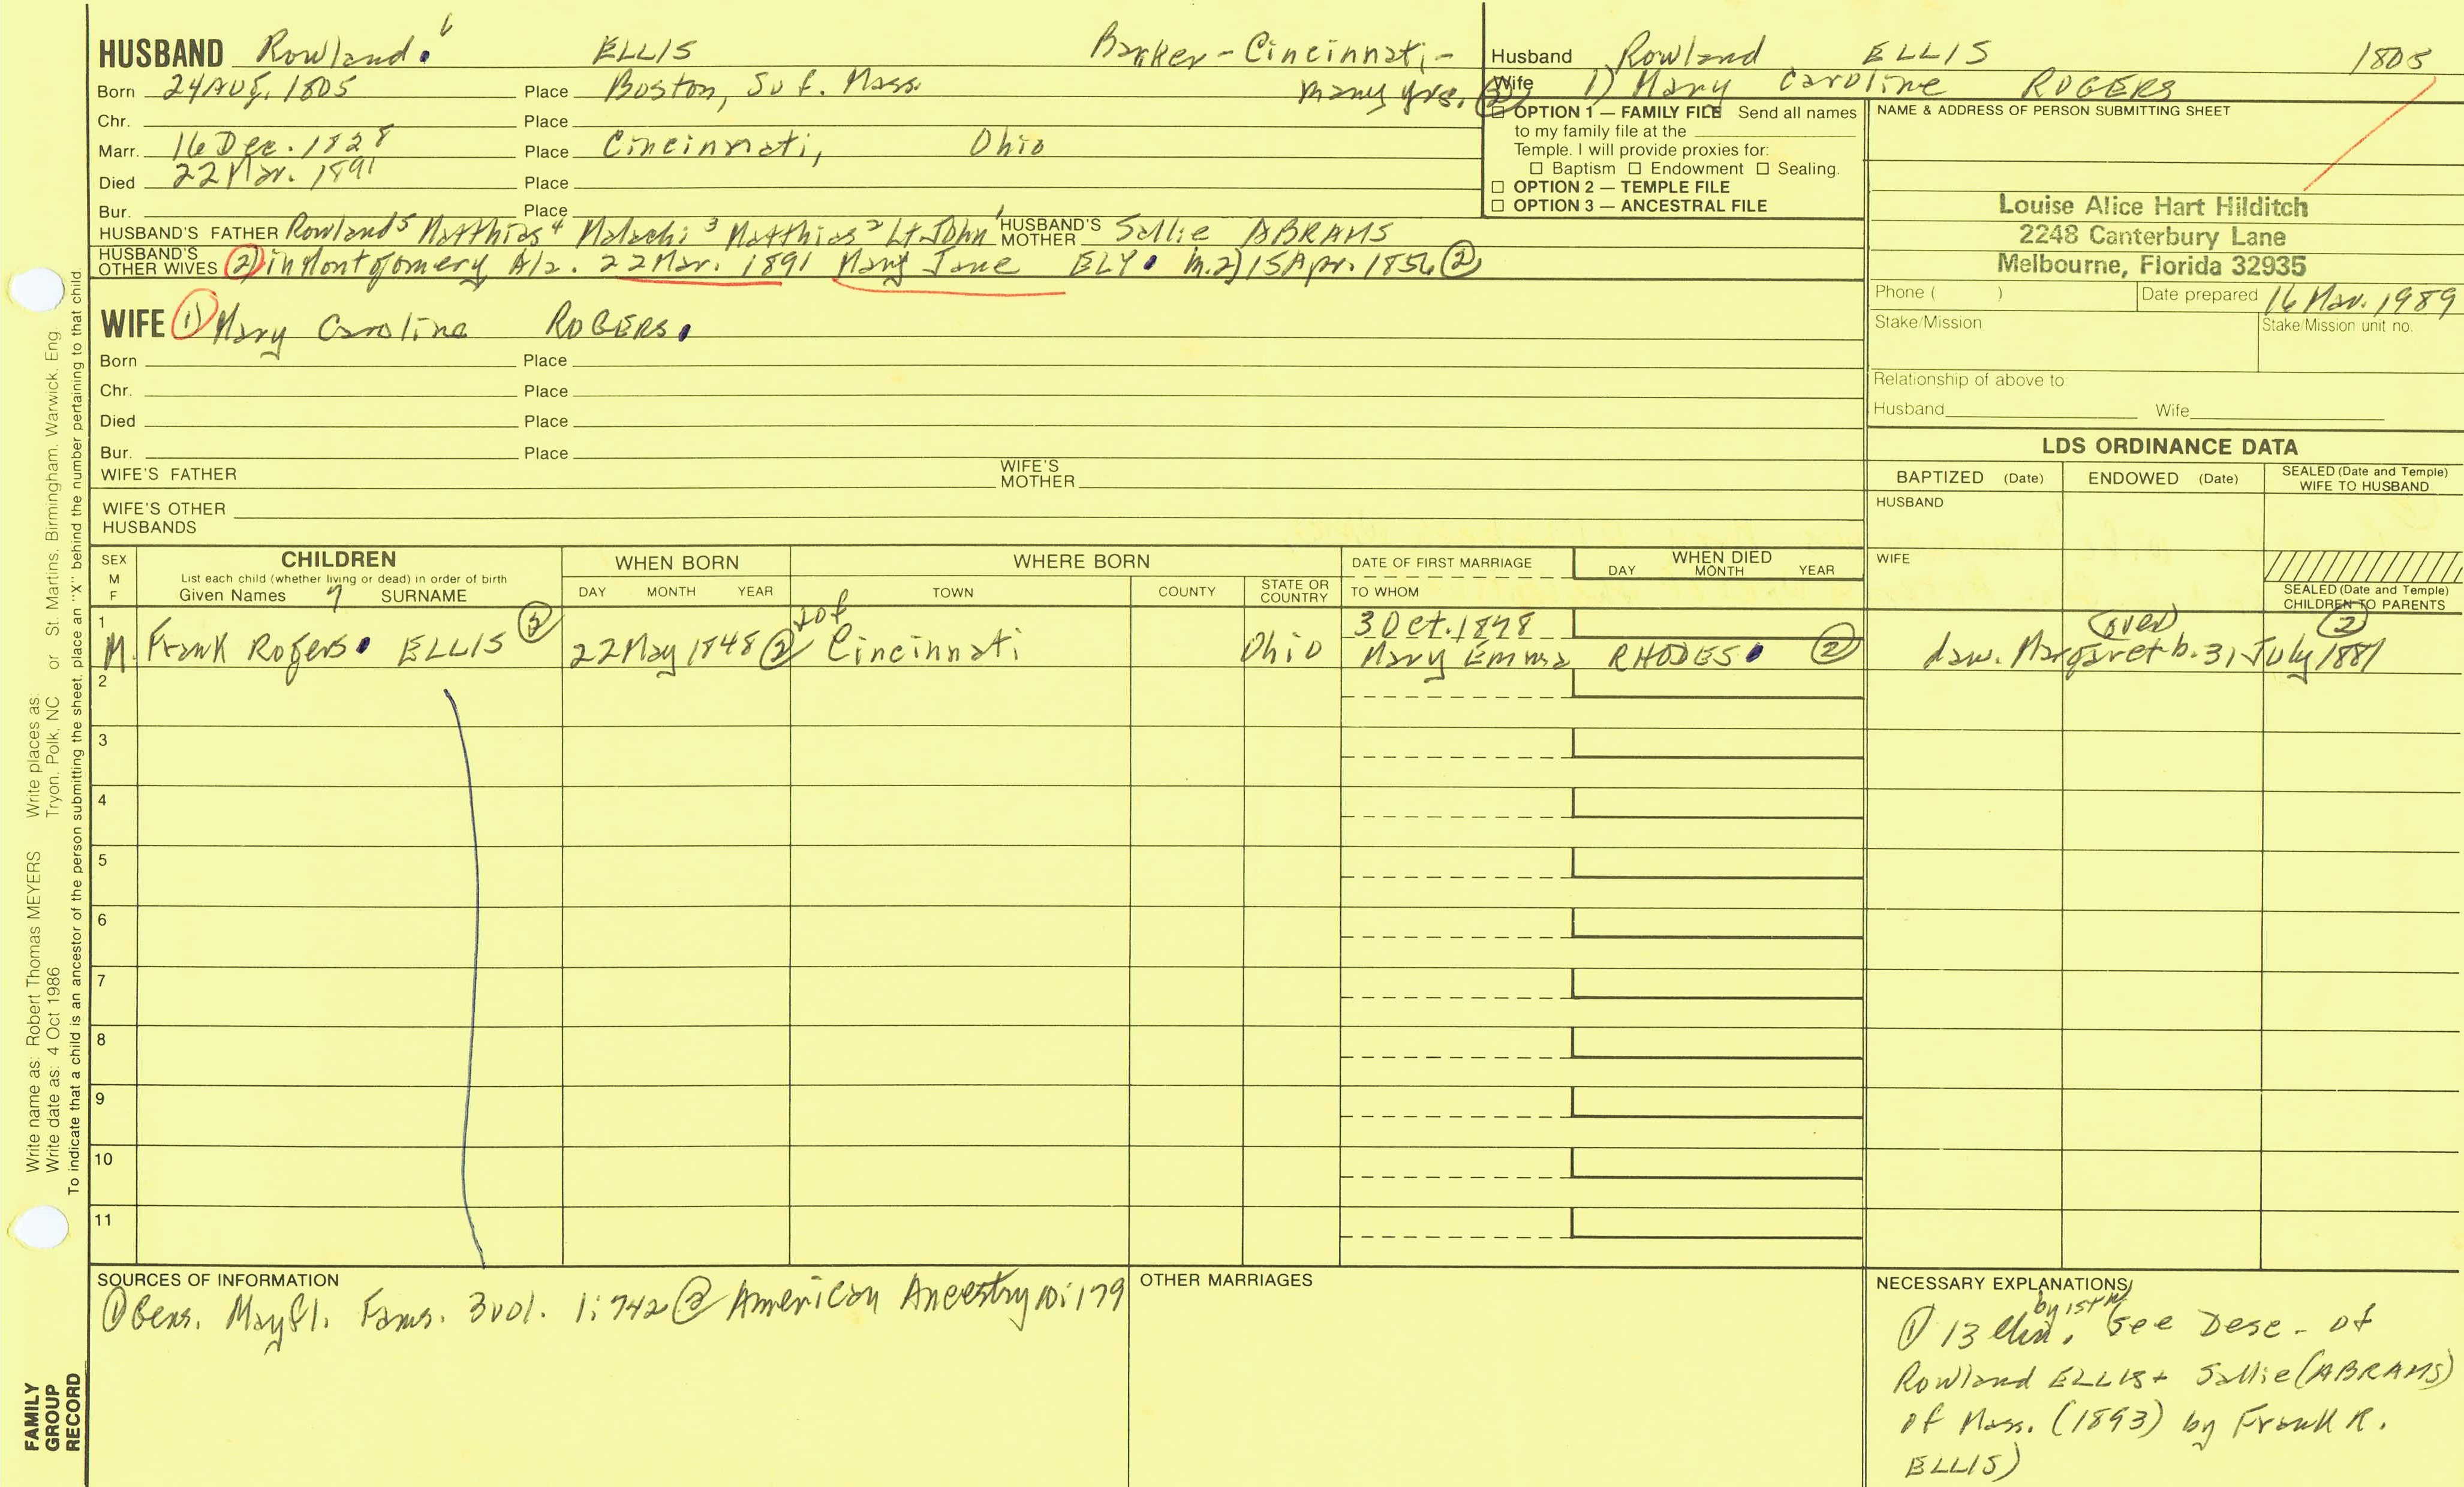 HUSBAND Rowland 6 ELLIS Banker - Cincinnati - many yrs. (2)
Born 24 Aug. 1805 Place Boston, Suf. Mass.
Chr. Place
Marr. 16 Dec. 1828 Place Cincinnati, Ohio
Died 22 Mar. 1891 Place
Bur. Place
HUSBAND'S FATHER Rowland 5 Matthias 4 Malachi 3 Matthias 2 Lt. John 1 HUSBAND'S MOTHER Sallie ABRAMS
HUSBAND'S OTHER WIVES (2) in Montgomery Ala. 22 Mar. 1891 Mary Jane ELY. m. 2) 15 Apr. 1856 (2)
WIFE (1) Mary Caroline ROGERS.
Born Place
Chr. Place
Died Place
Bur. Place
WIFE'S FATHER WIFE'S MOTHER
WIFE'S OTHER HUSBANDS
Husband Rowland ELLIS 1805
Wife 1) Mary Caroline ROGERS
☐ OPTION 1 — FAMILY FILE Send all names
to my family file at the
Temple. I will provide proxies for:
☐ Baptism ☐ Endowment ☐ Sealing.
☐ OPTION 2 — TEMPLE FILE
☐ OPTION 3 — ANCESTRAL FILE
NAME & ADDRESS OF PERSON SUBMITTING SHEET
Louise Alice Hart Hilditch
2248 Canterbury Lane
Melbourne, Florida 32935
Phone ( ) Date prepared 16 Mar. 1989
Stake/Mission Stake/Mission unit no.
Relationship of above to:
Husband Wife
LDS ORDINANCE DATA
BAPTIZED (Date) ENDOWED (Date) SEALED (Date and Temple) WIFE TO HUSBAND
HUSBAND
WIFE
SEALED (Date and Temple) CHILDREN TO PARENTS
SEX M F
CHILDREN
List each child (whether living or dead) in order of birth
Given Names 7 SURNAME
WHEN BORN
DAY MONTH YEAR
WHERE BORN
TOWN COUNTY STATE OR COUNTRY
DATE OF FIRST MARRIAGE
TO WHOM
WHEN DIED
DAY MONTH YEAR
1 M. Frank Rogers. ELLIS 22 May 1848 (2) Cincinnati Ohio
3 Oct. 1878
Mary Emma RHODES. (2)
(over) (2)
dau. Margaret b. 31 July 1881
2
3
4
5
6
7
8
9
10
11
SOURCES OF INFORMATION
(1) Gens. Mayfl. Fams. 3 vol. 1:742 (2) American Ancestry 10:179
OTHER MARRIAGES
NECESSARY EXPLANATIONS
by 1st m
(1) 13 chn. (see Desc. of
Rowland ELLIS + Sallie (ABRAMS)
of Mass. (1893) by Frank R.
ELLIS)
Write name as: Robert Thomas MEYERS Write places as:
Write date as: 4 Oct 1986 Tryon, Polk, NC or St. Martins, Birmingham, Warwick, Eng
To indicate that a child is an ancestor of the person submitting the sheet, place an "X" behind the number pertaining to that child.
FAMILY
GROUP
RECORD